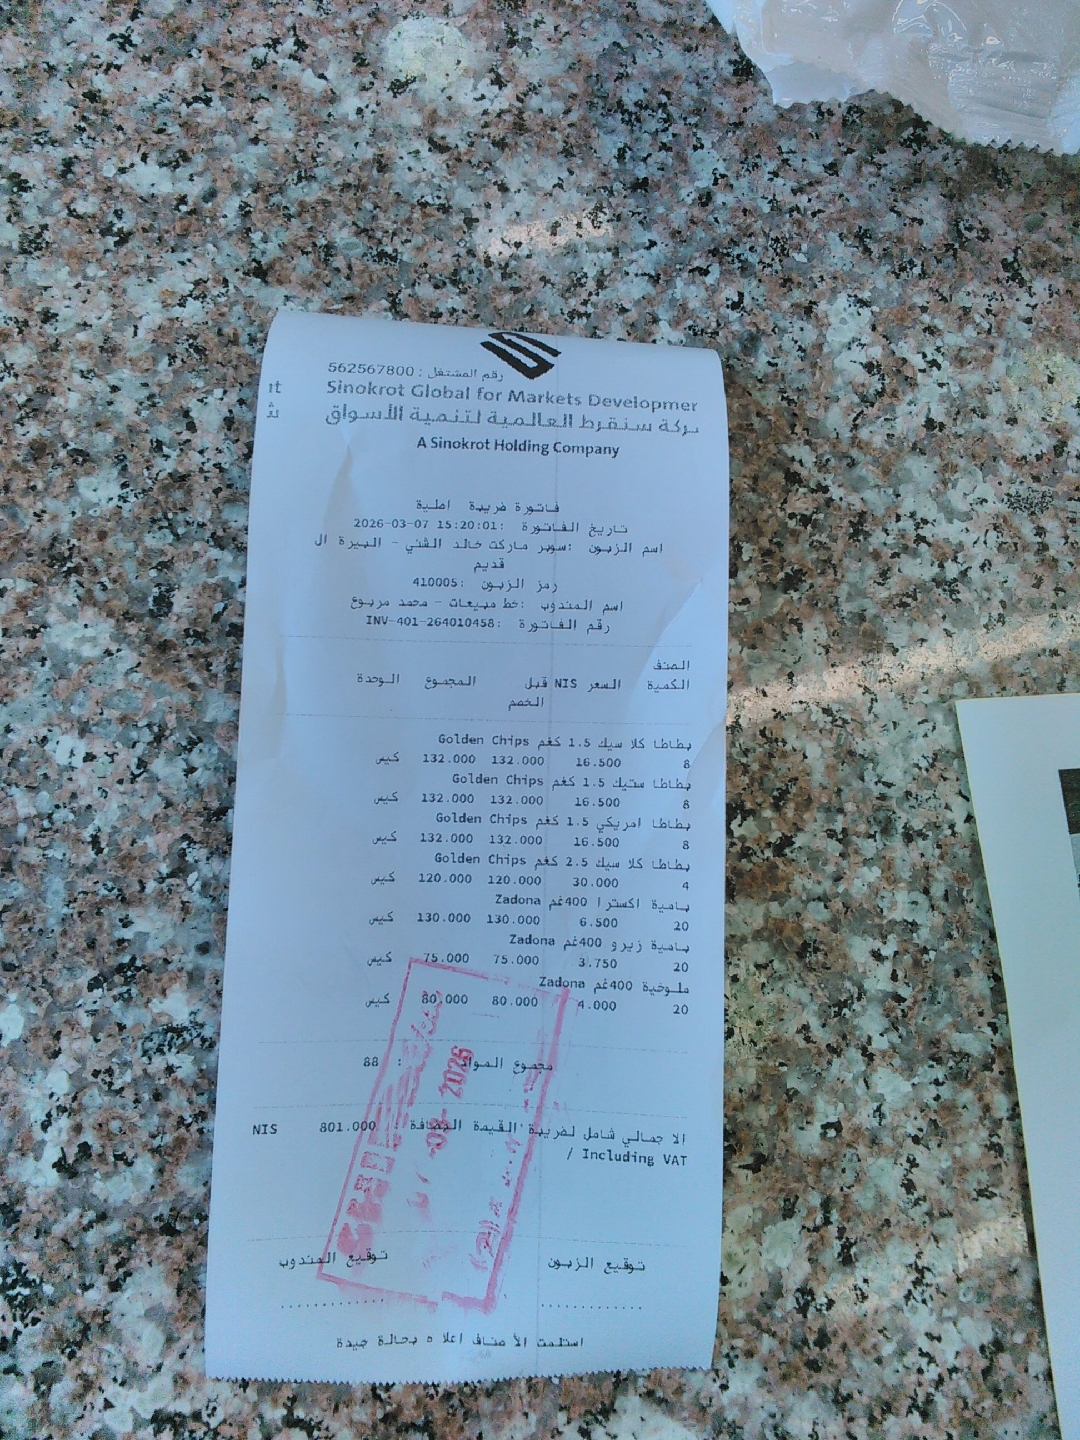 رقم المشتغل : 562567800
Sinokrot Global for Markets Developmer
ركة سنقرط العالمية لتنمية الأسواق
A Sinokrot Holding Company
فاتورة ضريبة اصلية
تاريخ الفاتورة :2026-03-07 15:20:01
اسم الزبون :سوبر ماركت خالد الشني - البيرة ال
قديم
رمز الزبون :410005
اسم المندوب :خط مبيعات - محمد مربوع
رقم الفاتورة :INV-401-264010458
الصنف
الكمية السعر NIS قبل المجموع الوحدة
الخصم
بطاطا كلا سيك 1.5 كغم Golden Chips
8 16.500 132.000 132.000 كيس
بطاطا ستيك 1.5 كغم Golden Chips
8 16.500 132.000 132.000 كيس
بطاطا امريكي 1.5 كغم Golden Chips
8 16.500 132.000 132.000 كيس
بطاطا كلا سيك 2.5 كغم Golden Chips
4 30.000 120.000 120.000 كيس
بامية اكسترا 400غم Zadona
20 6.500 130.000 130.000 كيس
بامية زيرو 400غم Zadona
20 3.750 75.000 75.000 كيس
ملوخية 400غم Zadona
20 4.000 80.000 80.000 كيس
مجموع المواد : 88
الا جمالي شامل لضريبة القيمة المضافة : 801.000 NIS
/ Including VAT
2026
توقيع الزبون توقيع المندوب
استلمت الأ صناف اعلا ه بحالة جيدة